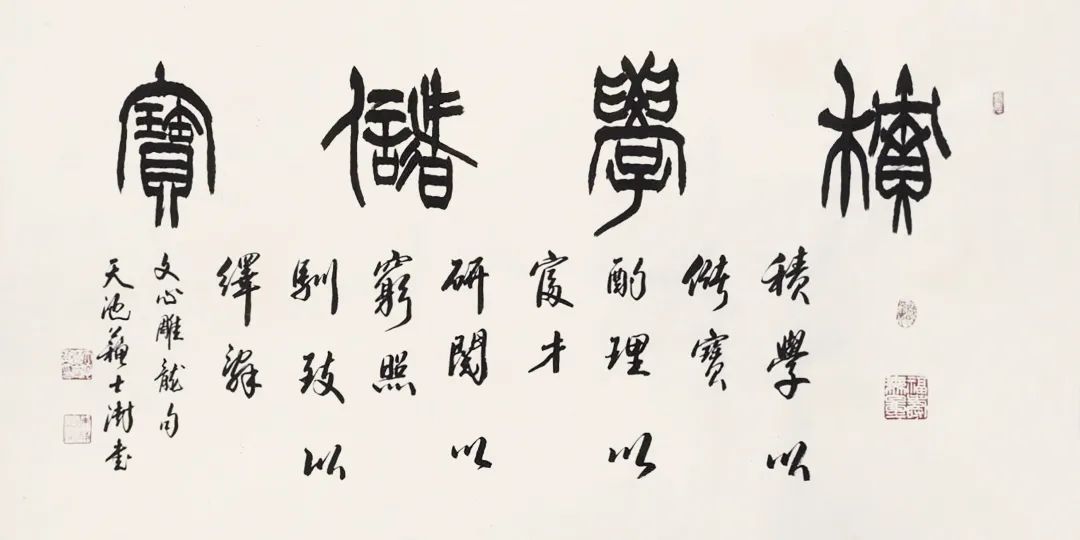 積學儲寶
積學以
儲寶
酌理以
富才
研閱以
窮照
馴致以
繹辭
文心雕龍句
天池蘇士澍書